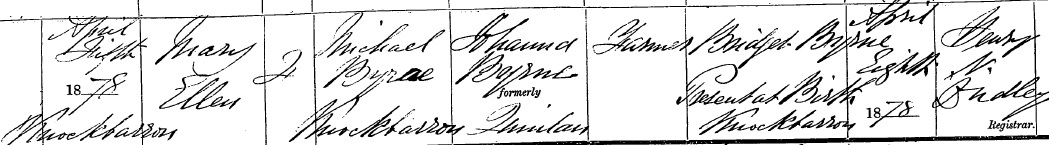 April
Fifth
1878
Knockbarron
Mary
Ellen
F
Michael
Byrne
Knockbarron
Johanna
Byrne
formerly
Quinlan
Farmer
Bridget Byrne
Present at Birth
Knockbarron
April
Eighth
1878
Henry
Registrar.